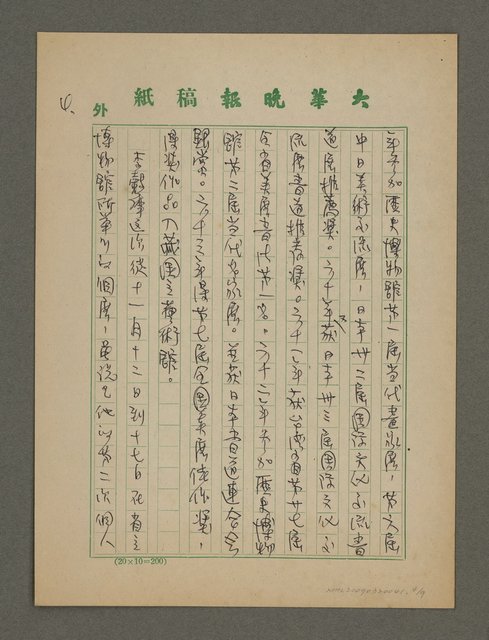 大華晚報稿紙
外
4.
年參加歷史博物館第一屆當代畫家展，第六屆
中日美術交流展，日本卅二屆國際文化交流書
道展推薦獎。六十年又獲日本卅三屆國際文化交
流展書道推秀獎。六十一年獲台灣省第廿七屆
全省美展書法第一名。六十二年參加歷史博物
館第二屆當代名家展。並獲日本書道連合會
賞。六十三年得第七屆全國美展佳作獎，
得獎作品入藏國立藝術館。
李轂摩這次從十一月十二日到十七日在省立
博物館所舉行的個展，是說是他的第二次個人
(20×10=200)